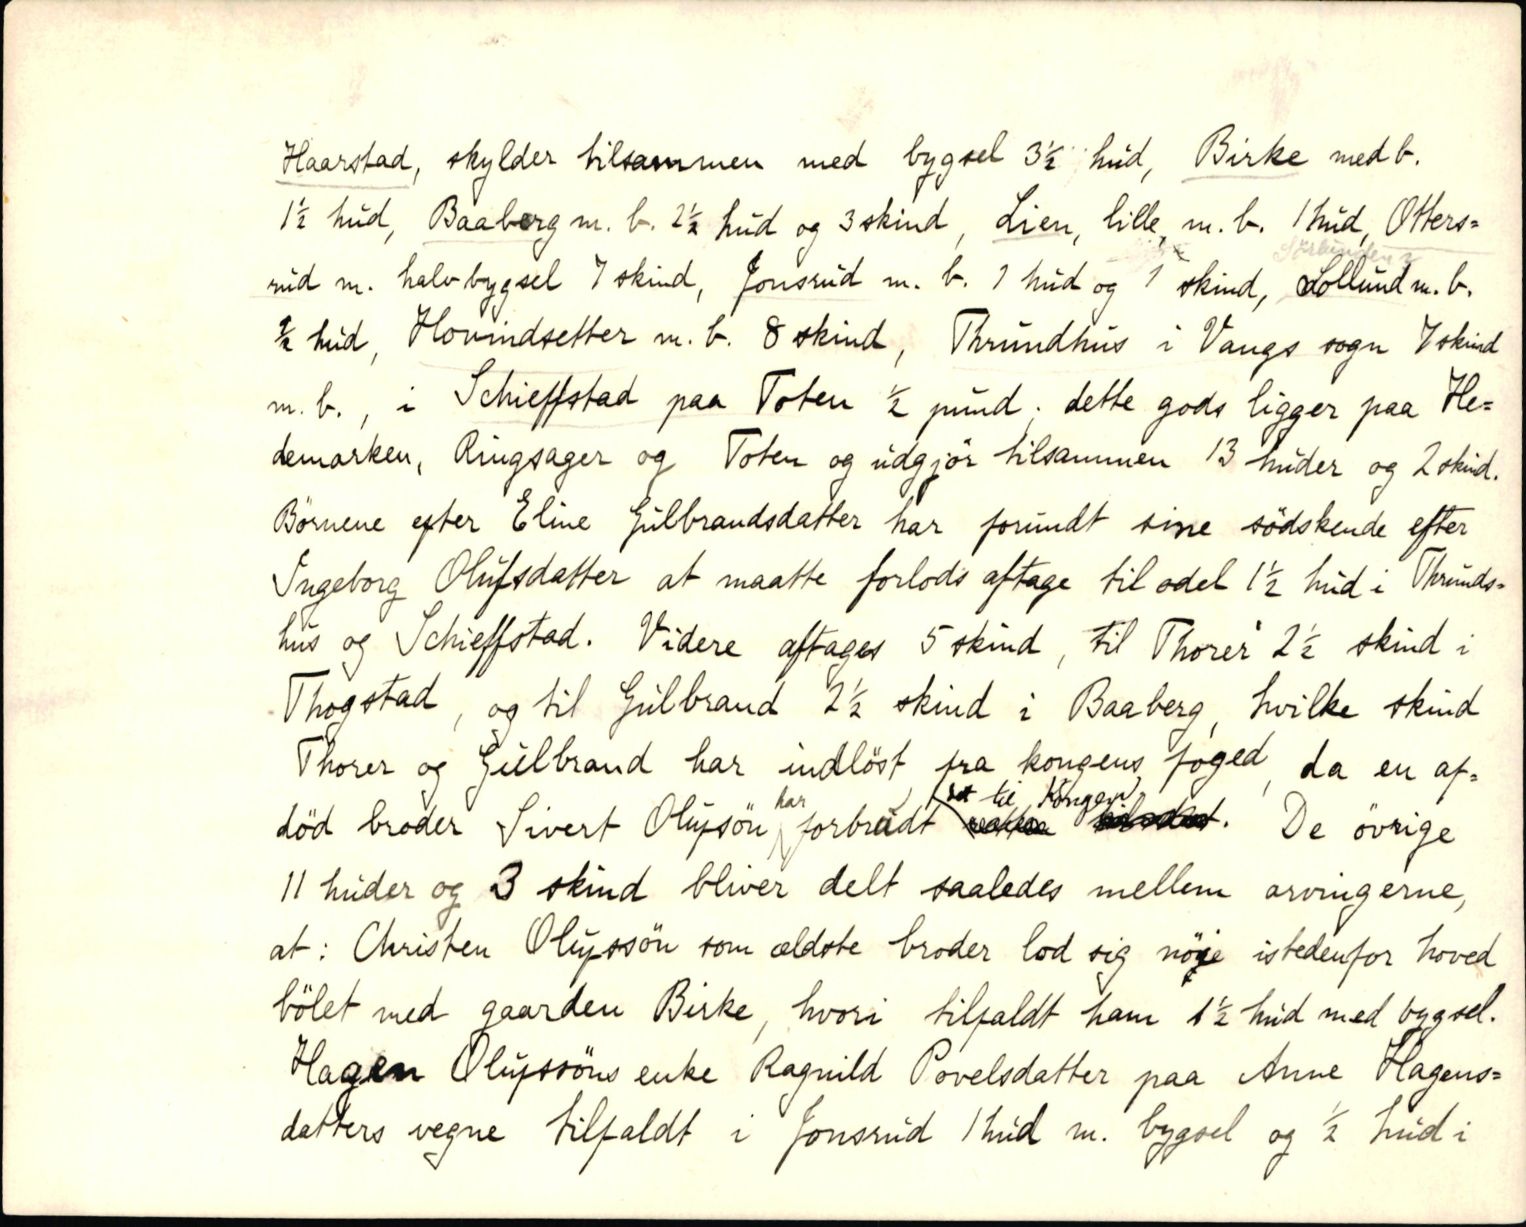 Haarstad, skylder tilsammen med bygsel 3½ hud, Birke med b.
1½ hud, Baaberg m. b. 2½ hud og 3 skind, Lien, lille, m. b. 1 hud, Otters=
rud m. halv bygsel 7 skind, Jonsrud m. b. 1 hud og 1 skind, Lollund m. b.
½ hud, Hovindsetter m. b. 8 skind, Thrundhus i Vangs sogn 7 skind
m. b., i Schieffstad paa Toten ½ pund. dette gods ligger paa He=
demarken, Ringsager og Toten og udgjör tilsammen 13 huder og 2 skind.
Börnene efter Eline Gulbrandsdatter har forundt sine södskende efter
Ingeborg Olufsdatter at maatte forlods aftage til odel 1½ hud i Thrunds=
hus og Schieffstad. Videre aftages 5 skind, til Thorer 2½ skind i
Thogstad, og til Gulbrand 2½ skind i Baaberg, hvilke skind
Thorer og Gulbrand har indlöst fra kongens foged, da en af=
död broder Sivert Olufsön har forbrudt til Kongen. De övrige
11 huder og 3 skind bliver delt saaledes mellem arvingerne,
at: Christen Olufssön som ældste broder lod sig nöie istedenfor hoved
bölet med gaarden Birke, hvori tilfaldt ham 1½ hud med bygsel.
Hagen Olufssöns enke Ragnild Povelsdatter paa Anne Hagens=
datters vegne tilfaldt i Jonsrud 1 hud m. bygsel og ½ hud i